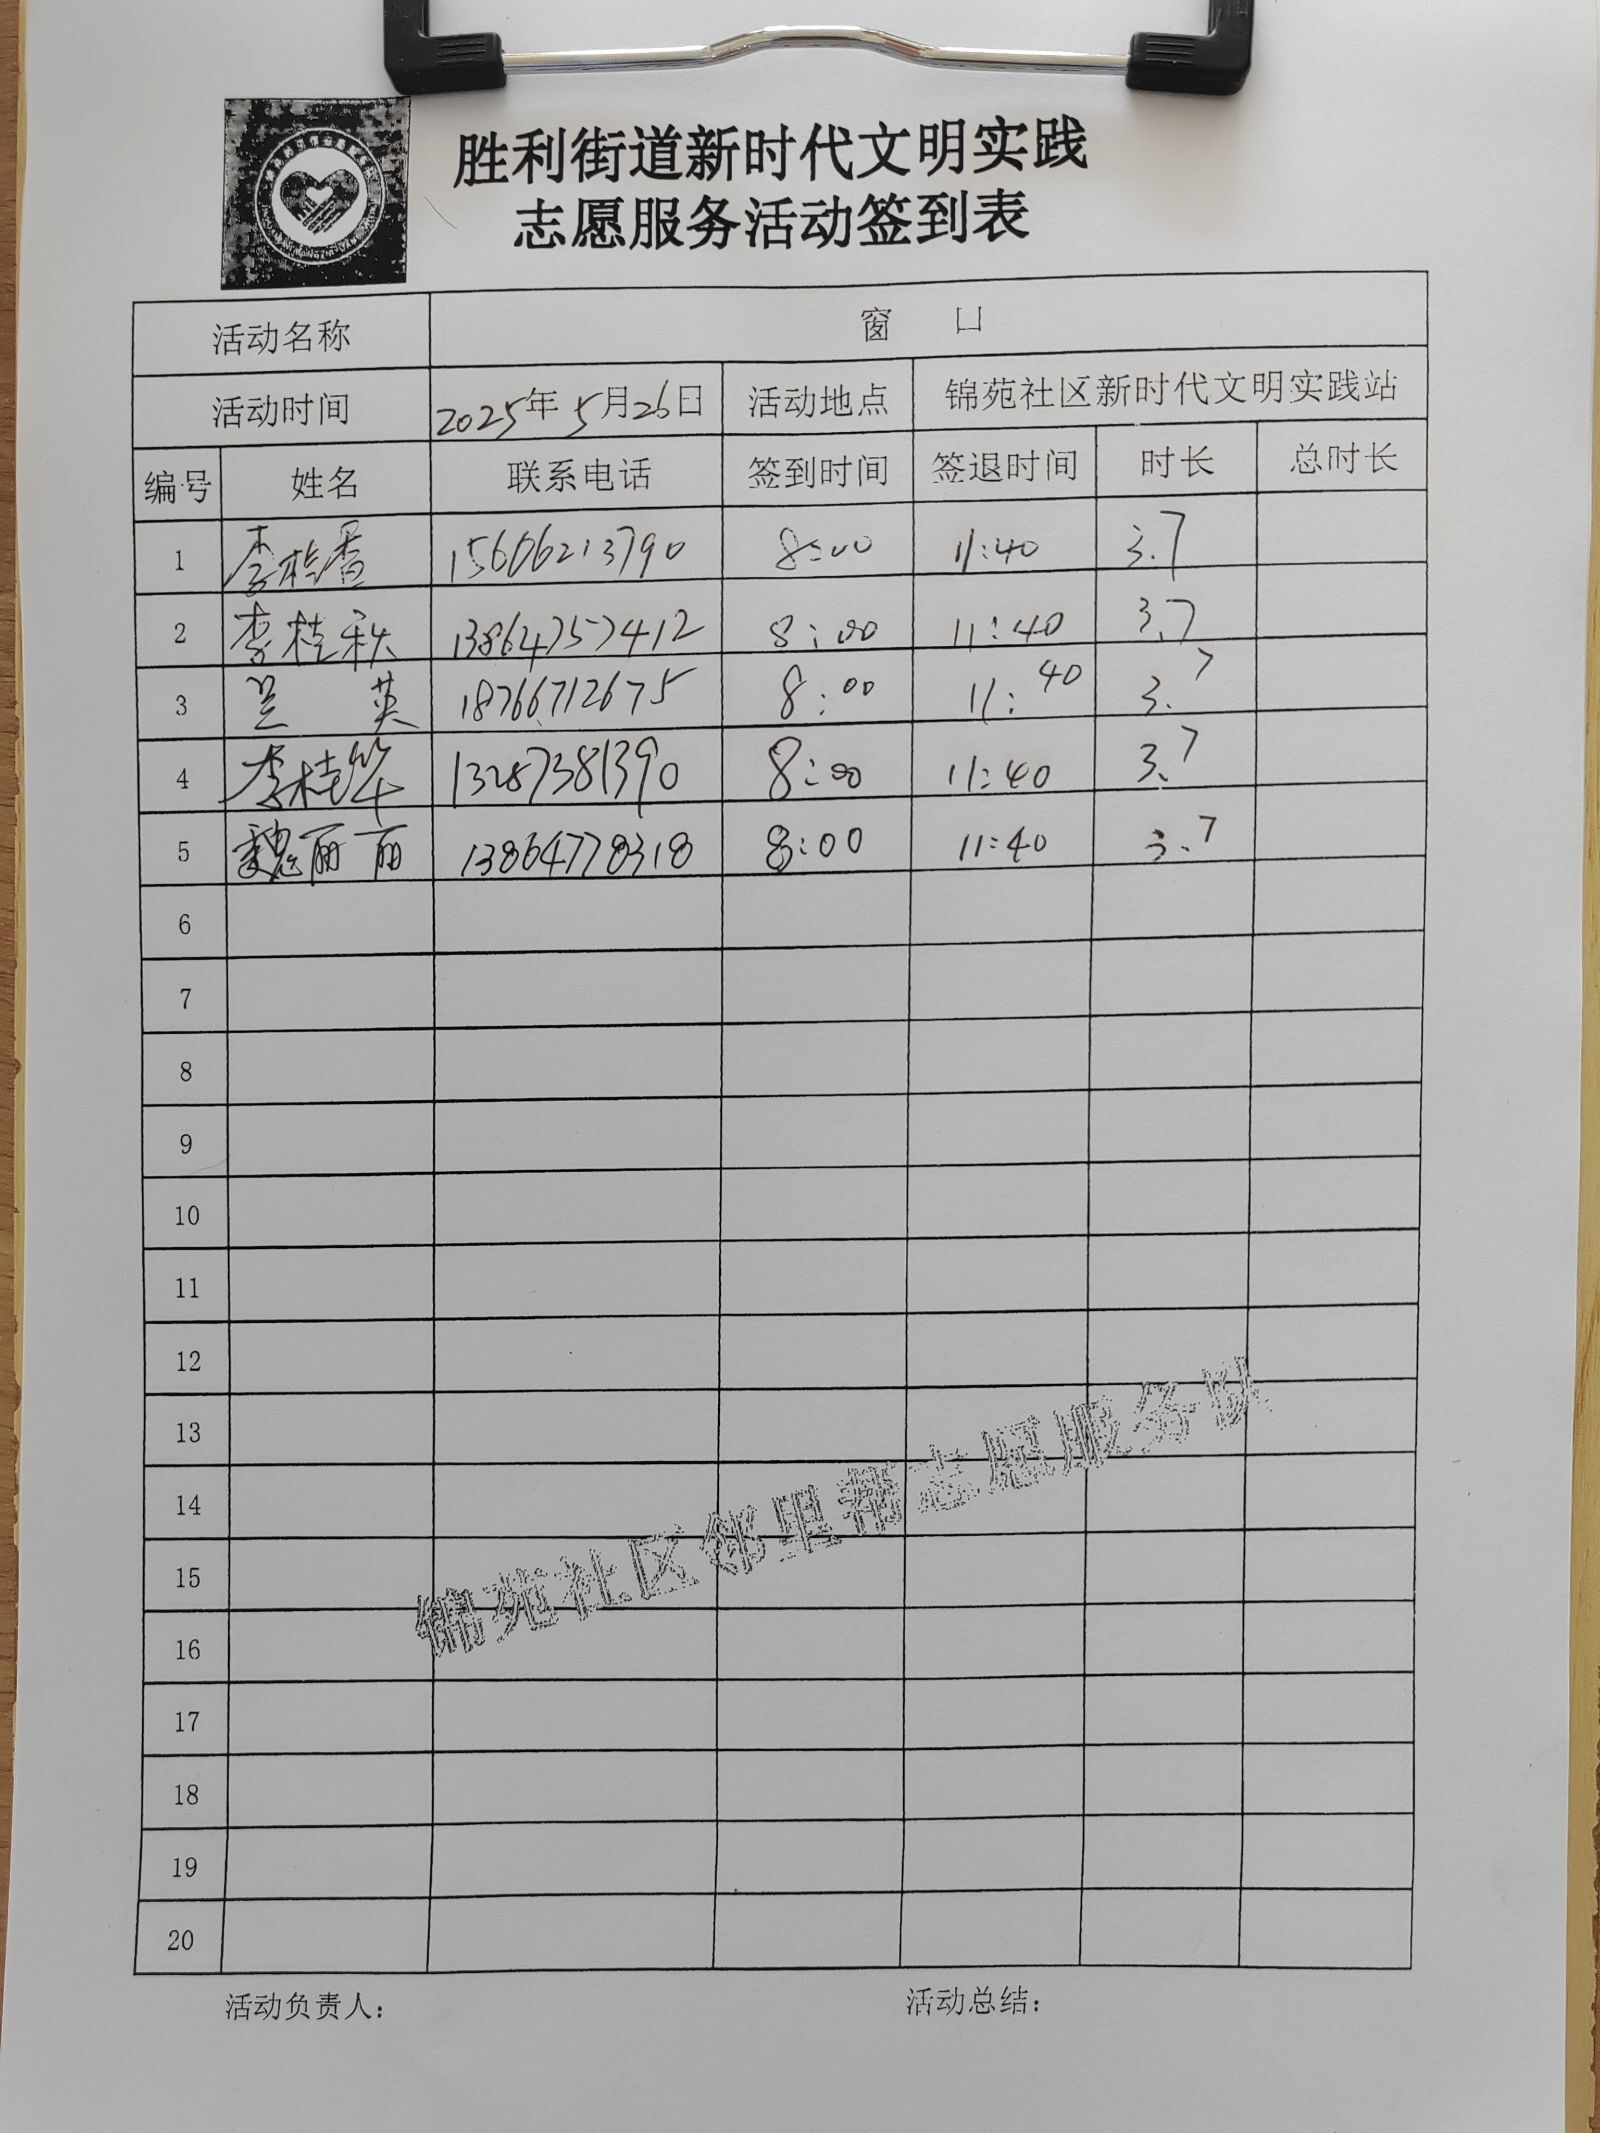 胜利街道新时代文明实践
志愿服务活动签到表
活动名称 窗 口
活动时间 2025年5月26日 活动地点 锦苑社区新时代文明实践站
编号 姓名 联系电话 签到时间 签退时间 时长 总时长
1 李桂香 15606213790 8:00 11:40 3.7
2 李桂秋 13864757412 8:00 11:40 3.7
3 兰英 18766712675 8:00 11:40 3.7
4 李桂华 13287381390 8:00 11:40 3.7
5 魏丽丽 13864778318 8:00 11:40 3.7
6
7
8
9
10
11
12
13
14
15
16
17
18
19
20
锦苑社区邻里帮志愿服务队
活动负责人： 活动总结：